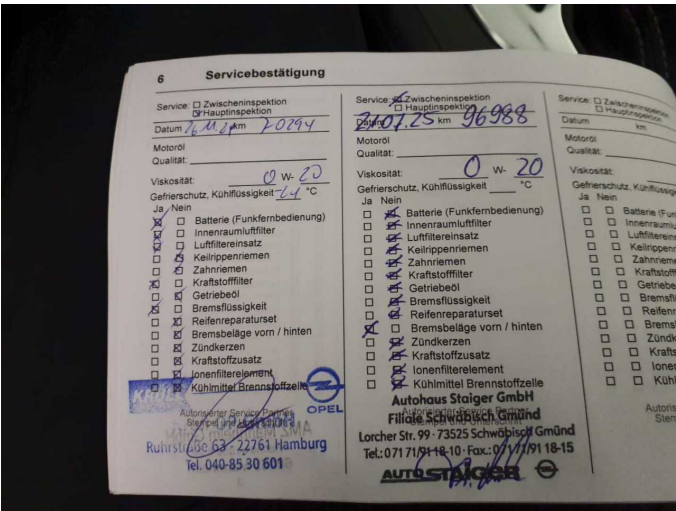 6 Servicebestätigung
Service: Zwischeninspektion
Hauptinspektion
Datum 26.11.24 km 70294
Motoröl
Qualität:
Viskosität: 0 W- 20
Gefrierschutz, Kühlflüssigkeit -24 °C
Ja Nein
Batterie (Funkfernbedienung)
Innenraumluftfilter
Luftfiltereinsatz
Keilrippenriemen
Zahnriemen
Kraftstofffilter
Getriebeöl
Bremsflüssigkeit
Reifenreparaturset
Bremsbeläge vorn / hinten
Zündkerzen
Kraftstoffzusatz
Ionenfilterelement
Kühlmittel Brennstoffzelle
KRÜLL
OPEL
Autorisierter Service Partner
Stempel und
GmbH
Ruhrstraße 63 · 22761 Hamburg
Tel. 040-85 30 601
Service: Zwischeninspektion
Hauptinspektion
Datum 21.07.25 km 96988
Motoröl
Qualität:
Viskosität: 0 W- 20
Gefrierschutz, Kühlflüssigkeit °C
Ja Nein
Batterie (Funkfernbedienung)
Innenraumluftfilter
Luftfiltereinsatz
Keilrippenriemen
Zahnriemen
Kraftstofffilter
Getriebeöl
Bremsflüssigkeit
Reifenreparaturset
Bremsbeläge vorn / hinten
Zündkerzen
Kraftstoffzusatz
Ionenfilterelement
Kühlmittel Brennstoffzelle
Autohaus Staiger GmbH
Autorisierter Service Partner
Filiale Schwäbisch Gmünd
Stempel und Unterschrift
Lorcher Str. 99 · 73525 Schwäbisch Gmünd
Tel.: 071 71/91 18-10 · Fax.: 071 71/91 18-15
AUTO STAIGER
Service: Zwischeninspektion
Hauptinspektion
Datum km
Motoröl
Qualität:
Viskosität:
Gefrierschutz, Kühlflüssig
Ja Nein
Batterie (Fun
Innenraumlu
Luftfilterein
Keilrippen
Zahnrieme
Kraftstoff
Getriebe
Bremsfl
Reifenr
Brems
Zündk
Krafts
Ionen
Kühl
Autoris
Stem